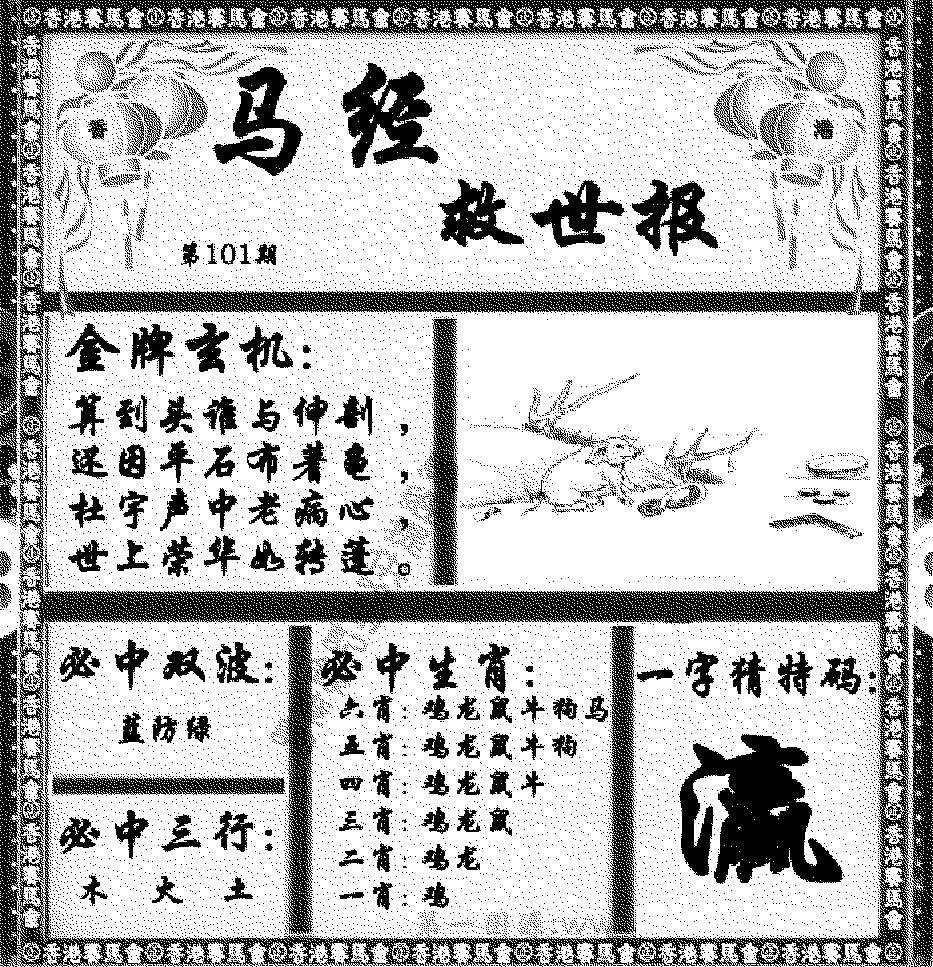 香港赛馬會香港赛馬會香港赛馬會香港赛馬會香港赛馬會香港赛馬會香港赛馬會
香
港
马经
救世报
第101期
金牌玄机:
算到头谁与伸剖,
还因平石布著龟,
杜宇声中老病心,
世上荣华如转蓬。
必中双波:
蓝防绿
必中三行:
木 火 土
必中生肖:
六肖: 鸡龙鼠牛狗马
五肖: 鸡龙鼠牛狗
四肖: 鸡龙鼠牛
三肖: 鸡龙鼠
二肖: 鸡龙
一肖: 鸡
一字猜特码:
香港赛馬會香港赛馬會香港赛馬會香港赛馬會香港赛馬會香港赛馬會香港赛馬會